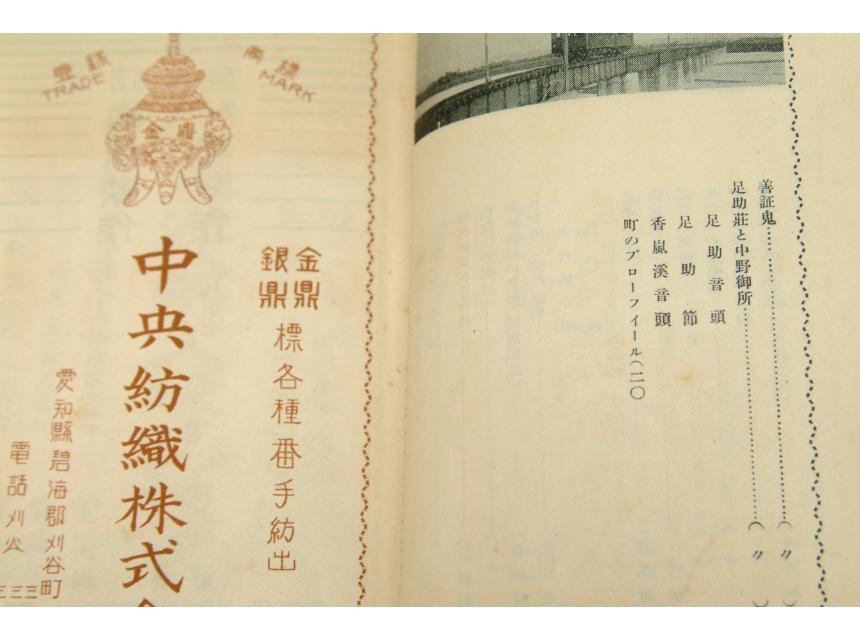 善証鬼…………………………………（〃）
足助莊と中野御所……………………（〃
足助音頭
足助節
香嵐溪音頭
町のプローフイール（二〇
登録
商標
TRADE
MARK
金鼎
金鼎
銀鼎
標各種番手紡出
中央紡織株式
愛知縣碧海郡刈谷町
電話刈谷
三三三